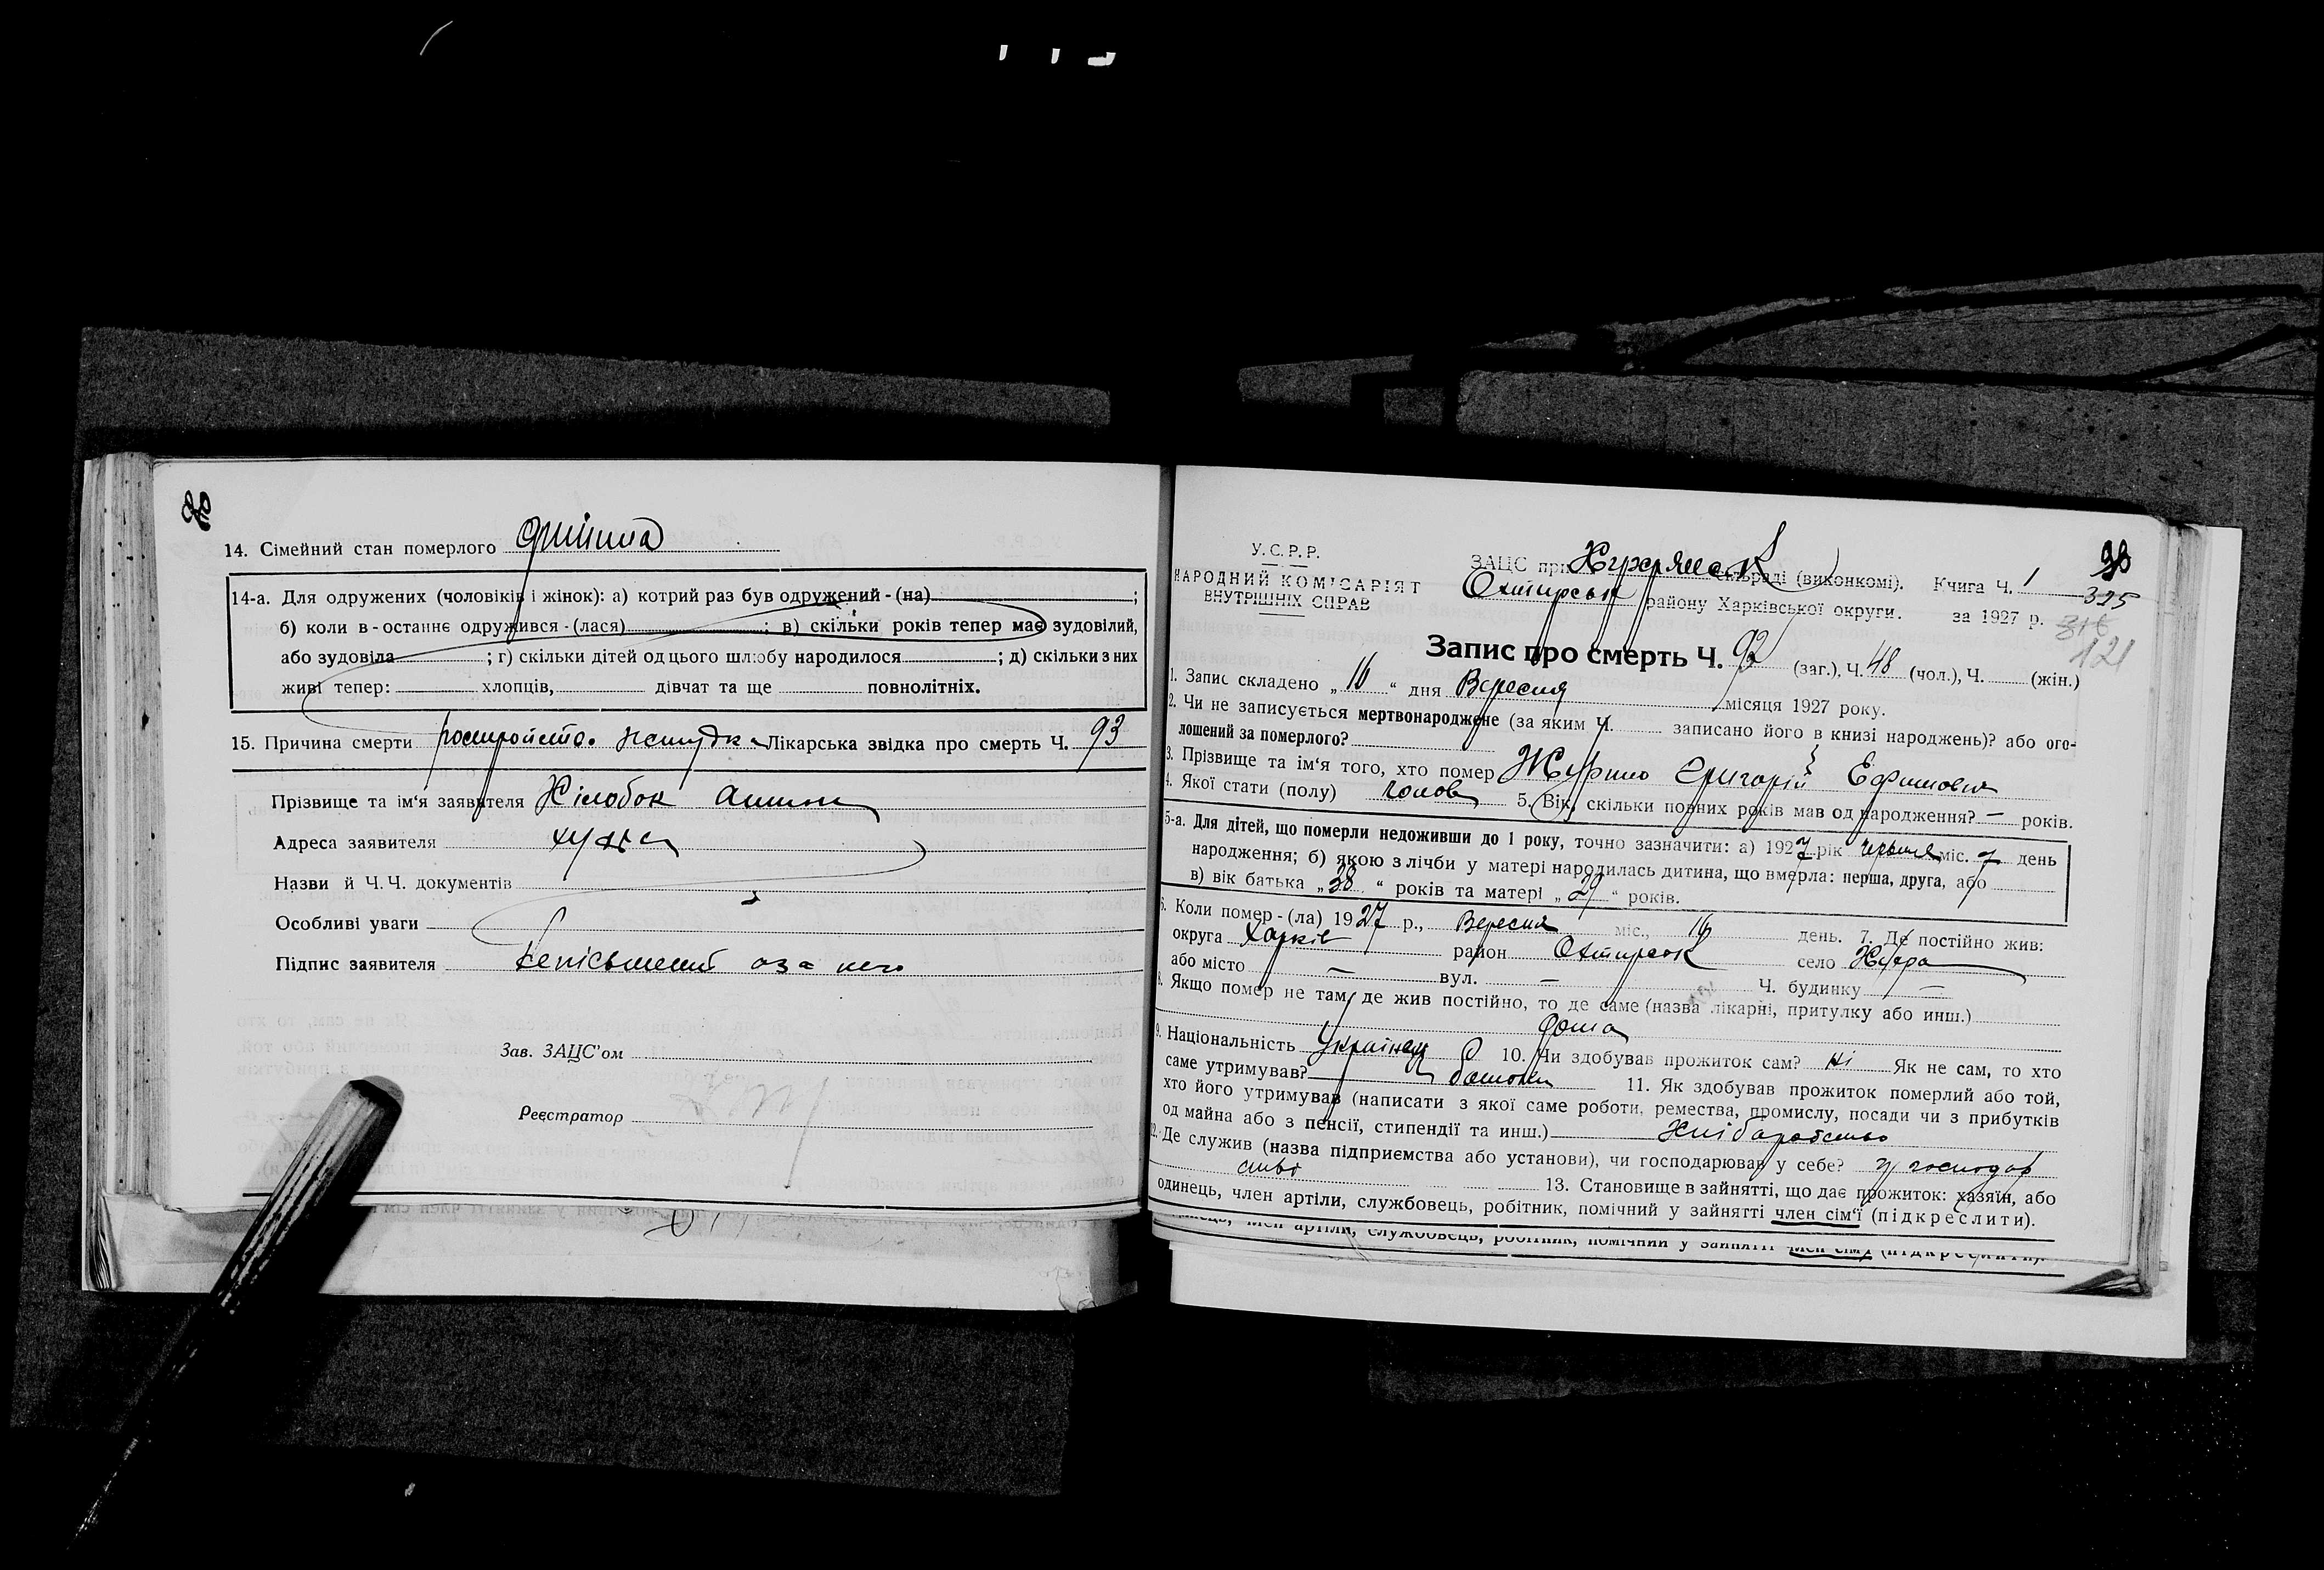 14. Сімейний стан померлого дитина
14-а. Для одружених (чоловіків і жінок): а) котрий раз був одружений - (на) ;
б) коли в-останнє одружився - (лася) ; в) скільки років тепер має зудовілий,
або зудовіла ; г) скільки дітей од цього шлюбу народилося ; д) скільки з них
живі тепер: хлопців, дівчат та ще повнолітніх.
15. Причина смерти Лікарська звідка про смерть Ч. 93
Прізвище та ім'я заявителя
Адреса заявителя
Назви й Ч.Ч. документів
Особливі уваги
Підпис заявителя
Зав. ЗАЦС'ом
Реєстратор
У.С.Р.Р.
НАРОДНИЙ КОМІСАРІЯТ
ВНУТРІШНІХ СПРАВ
ЗАЦС при сільраді (виконкомі). Книга Ч. 1
Охтирськ району Харківської округи. за 1927 р.
325
121
Запис про смерть Ч. 92 (заг.), Ч. 48 (чол.), Ч. (жін.)
1. Запис складено „ 16 “ дня Вересня місяця 1927 року.
2. Чи не записується мертвонароджене (за яким Ч. записано його в книзі народжень)? або ого-
лошений за померлого?
3. Прізвище та ім'я того, хто помер Григорій Ефимович
4. Якої стати (полу) чолов 5. Вік, скільки повних років мав од народження? — років.
5-а. Для дітей, що померли недоживши до 1 року, точно зазначити: а) 1927 рік червня міс. 7 день
народження; б) якою з лічби у матері народилась дитина, що вмерла: перша, друга, або
в) вік батька „ 38 “ років та матері „ 29 “ років.
6. Коли помер - (ла) 1927 р., Вересня міс., 16 день. 7. Де постійно жив:
округа Харків район Охтирськ село
або місто — вул. — Ч. будинку —
8. Якщо помер не там, де жив постійно, то де саме (назва лікарні, притулку або инш.)
дома
9. Національність Українец 10. Чи здобував прожиток сам? ні Як не сам, то хто
саме утримував? батьки 11. Як здобував прожиток померлий або той,
хто його утримував (написати з якої саме роботи, ремества, промислу, посади чи з прибутків
од майна або з пенсії, стипендії та инш.) Хліборобство
12. Де служив (назва підприємства або установи), чи господарював у себе? у господар
ство 13. Становище в зайнятті, що дає прожиток: хазяїн, або
одинець, член артіли, службовець, робітник, помічний у зайнятті член сім'ї (підкреслити).